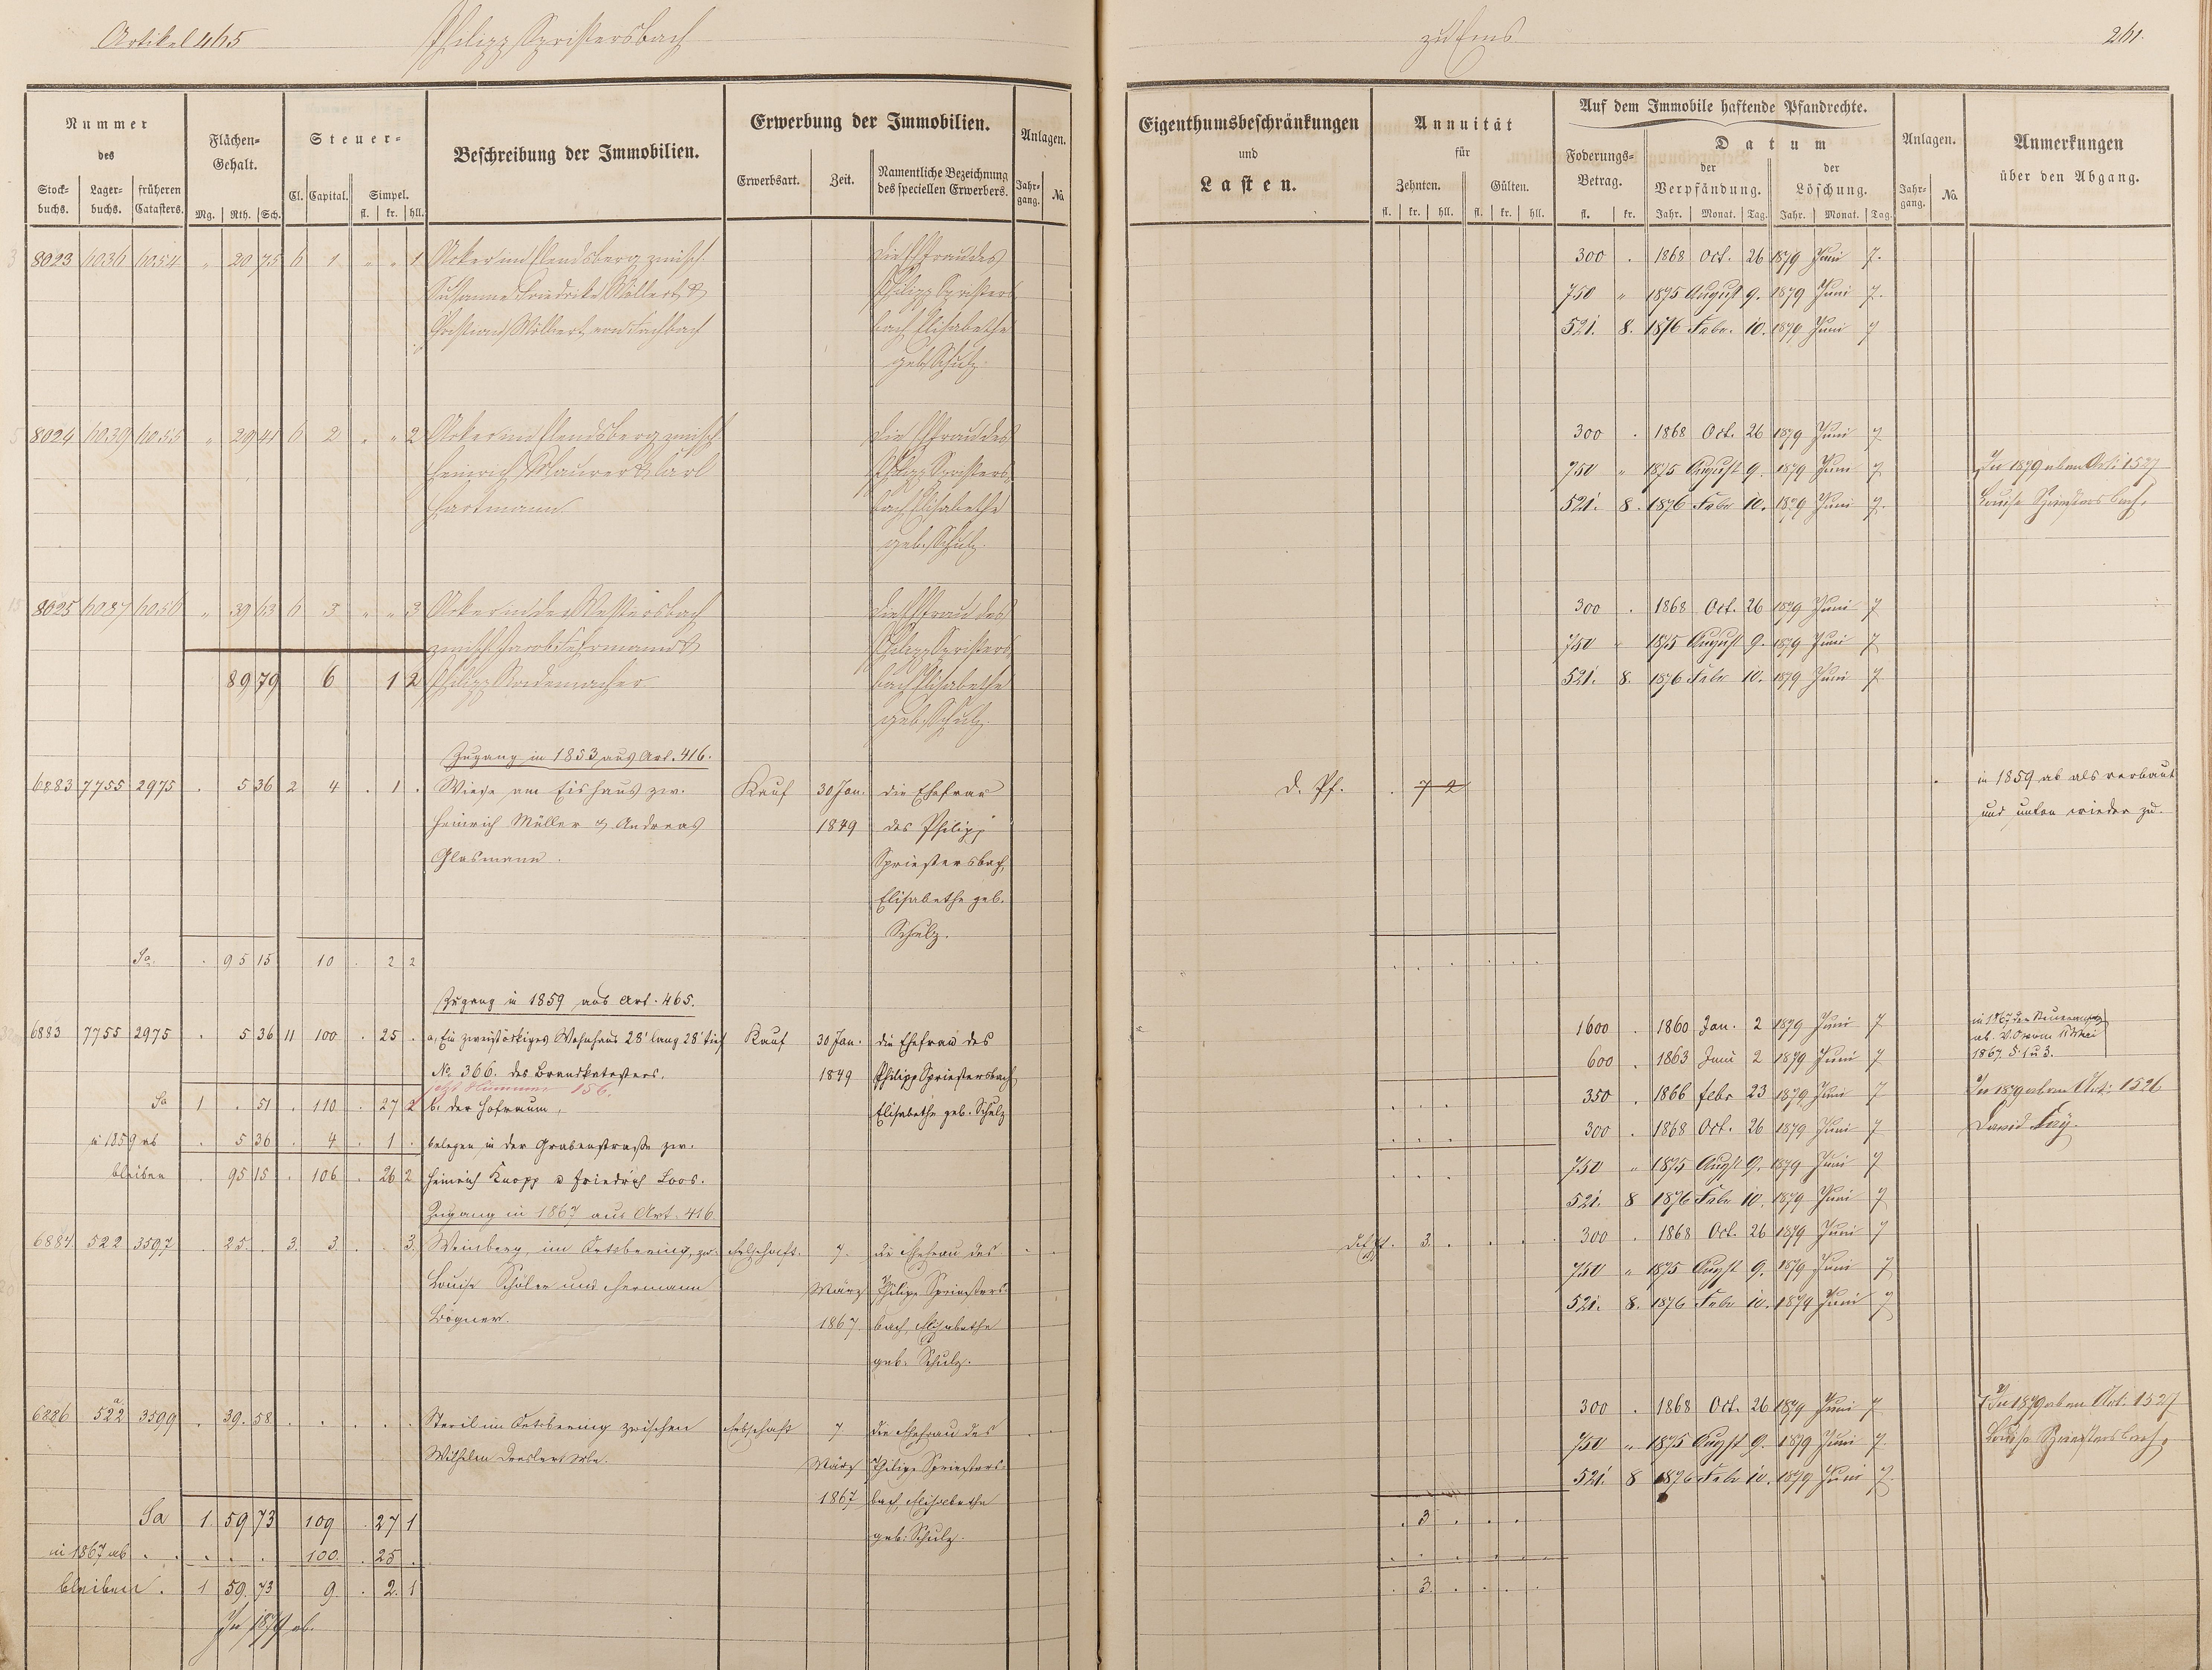 Artikel 465 Philipp Spriestersbach zu Ems 261.
Nummer des
Stock-buchs. Lager-buchs. früheren Catasters.
Flächen-Gehalt.
Mg. Rth. Sch.
Steuer-
Cl. Capital. Simpel. fl. kr. hll.
Beschreibung der Immobilien.
Erwerbung der Immobilien.
Erwerbsart. Zeit. Namentliche Bezeichnung des speciellen Erwerbers.
Anlagen.
Jahr-gang. No.
Eigenthumsbeschränkungen
und
Lasten.
Annuität
für
Zehnten. Gülten.
fl. kr. hll. fl. kr. hll.
Auf dem Immobile haftende Pfandrechte.
Foderungs-Betrag. fl. kr.
Datum
der Verpfändung. der Löschung.
Jahr. Monat. Tag. Jahr. Monat. Tag.
Anlagen.
Jahr-gang. No.
Anmerkungen
über den Abgang.
8023 6036 6054 " 20 75 6 1 " " 1 Acker im Elendsberg zwisch. die Ehefrau des
Susanne Friedrike Wöllert & Philipp Spriesters
Christian Wöllert von Fachbach bach Elisabethe
geb. Schulz.
300 . 1868 Oct. 26 1879 Juni 7.
750 " 1875 August 9. 1879 Juni 7.
521. 8. 1876 Febr. 10. 1879 Juni 7
8024 6039 6055 " 29 41 6 2 " " 2 Acker im Elendsberg zwisch die Ehefrau des
Heinrich Maurer & Carl Philipp Spriesters
Hartmann bach Elisabethe
geb. Schulz.
300 . 1868 Oct. 26 1879 Juni 7
750 " 1875 August 9. 1879 Juni 7 In 1879 ab an Art. 1527
521. 8. 1876 Febr 10. 1879 Juni 7. Louise Spriestersbach.
8025 6087 6056 " 39 63 6 3 " " 3 Acker in der Westersbach die Ehefrau des
zwisch. Jacob Fuhrmann & Philipp Spriesters
89 79 6 1 2 Philipp Rademacher bach Elisabethe
geb. Schulz.
300 . 1868 Oct. 26 1879 Juni 7
750 " 1875 August 9. 1879 Juni 7
521. 8. 1876 Febr 10. 1879 Juni 7
Zugang in 1853 aus Art. 416.
6883 7755 2975 . 5 36 2 4 . 1 . Wiese am Eishaus zw. Kauf 30 Jan. die Ehefrau
Heinrich Müller & Andreas 1849 des Philipp
Glasmann. Spriestersbach,
Elisabethe geb.
Schulz.
d. Pf. . 7 2 in 1859 ab als verbaut
und unten wieder zu.
Sa. . 95 15 10 . 2 2
Zugang in 1859 aus Art. 465.
6883 7755 2975 . 5 36 11 100 . 25 . a, Ein zweistöckiges Wohnhaus 28' lang 28' tief Kauf 30 Jan. die Ehefrau des
No 366. des Brandkatasters. 1849 Philipp Spriestersbach
jetzt Nummer 156.
Sa 1 . 51 . 110 . 27 2 b. der Hofraum, Elisabethe geb. Schulz
in 1859 ab . 5 36 . 4 . 1 . belegen in der Grabenstraße zw.
bleiben . 95 15 . 106 . 26 2 Heinrich Knopp & Friedrich Loos.
1600 . 1860 Jan. 2 1879 Juni 7
600 . 1863 Juni 2 1879 Juni 7 1867. §. 1 u 3.
350 . 1866 Febr 23 1879 Juni 7 In 1879 ab an Art. 1526
300 . 1868 Oct. 26 1879 Juni 7 David Lay.
750 " 1875 Augst 9. 1879 Juni 7
521. 8 1876 Febr 10. 1879 Juni 7
Zugang in 1867 aus Art. 416
6884 522 3597 . 25 . 3. 3. . . 3. Weinberg im zw. Erbschaft. 7. die Ehefrau des
Louise Schüler und Hermann März Philipp Spriesters-
Bögner. 1867 bach, Elisabethe
geb. Schulz.
3. . 300 . 1868 Oct. 26 1879 Juni 7
750 " 1875 Augst 9. 1879 Juni 7
521. 8. 1876 Febr 10. 1879 Juni 7
6886 522 a 3599 . 39. 58 . . . . . Steril im zwischen Erbschaft 7. die Ehefrau des
Wilhelm März Philipp Spriesters-
1867 bach, Elisabethe
geb. Schulz.
300 . 1868 Oct. 26 1879 Juni 7 In 1879 ab an Art. 1527
750 " 1875 Augst 9. 1879 Juni 7. Louise Spriestersbach.
521. 8 1876 Febr 10. 1879 Juni 7.
Sa 1. 59 73 109 . 27 1 . 3 . . . .
in 1867 ab . . . . 100. . 25 .
bleiben. 1 59. 73 9. . 2. 1 . 3. . . . .
In 1879 ab.